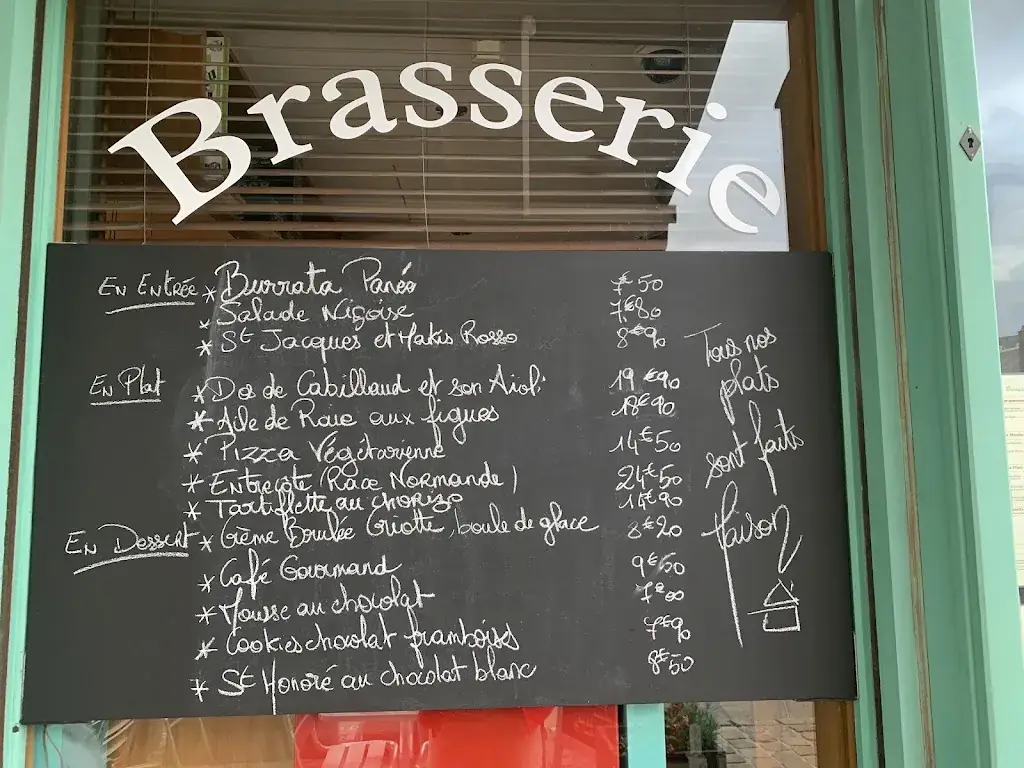 Brasserie
En Entrée * Burrata Panée €50
* Salade Niçoise 7€80
* St Jacques et Makis Rosso 8€90
En Plat * Dos de Cabillaud et son Aioli 19€90
* Aile de Raie aux figues 18€90
* Pizza Végétarienne 14€50
* Entrecote (Race Normande) 24€50
* Tartiflette au chorizo 14€90
En Dessert * Crème Brulée Griotte, boule de glace 8€20
* Café Gourmand 9€50
* Mousse au chocolat 7€00
* Cookies chocolat framboises 7€90
* St Honoré au chocolat blanc 8€50
Tous nos
plats
sont faits
Maison